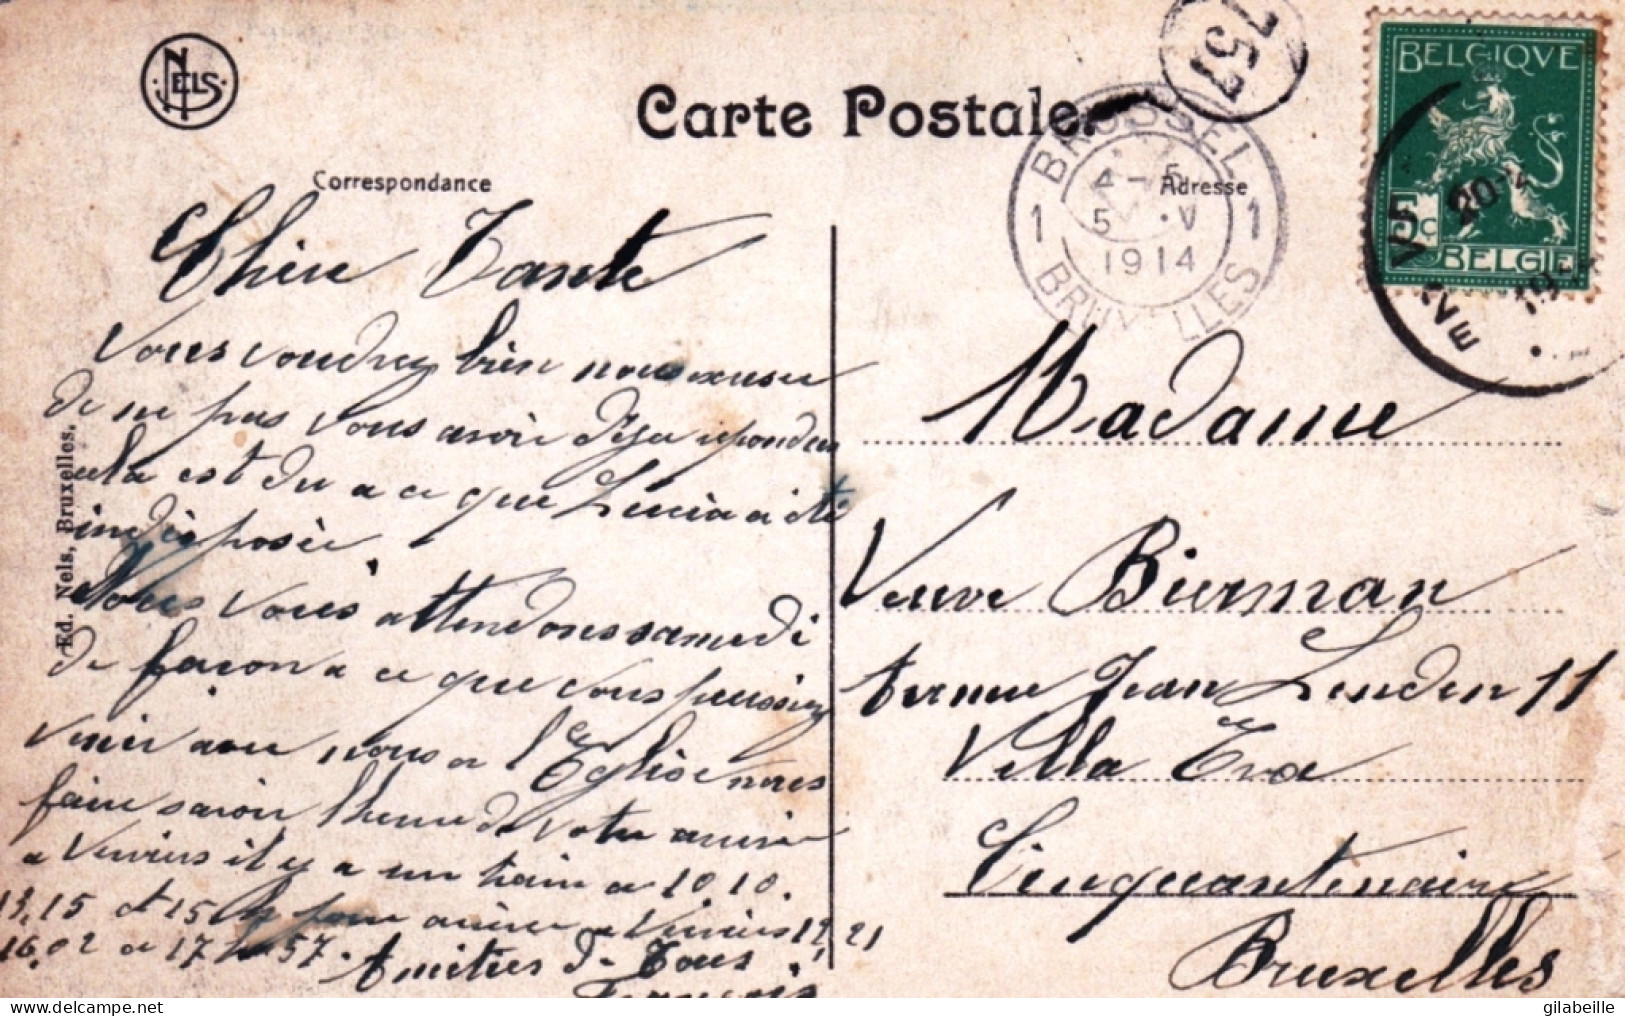 NELS
Carte Postale.
Correspondance
Adresse
757
BRUSSEL
4-5
1 5 · V 1
1914
BRUXELLES
BELGIQVE
5c
BELGIE
20-
VERV
Ed. Nels, Bruxelles.
Chere Tante
Vous voudrez bien nous excuser
de ne pas vous avoir deja repondu
cela est du a ce que Lucia a été
indisposée.
Nous vous attendons samedi
de façon a ce que vous puissiez
venir avec nous a l'Eglise nous
faire savoir l'heure de votre arrivée
a Verviers il y a un train a 10 10.
13,15 et 15 pour arriver a Verviers 12 21
16.02 a 17 h 57.
Amitiés de Tous
François
Madame
Veuve Bierman
Avenue Jean Linden 11
Villa Eva
Cinquantenaire
Bruxelles
gilabeille